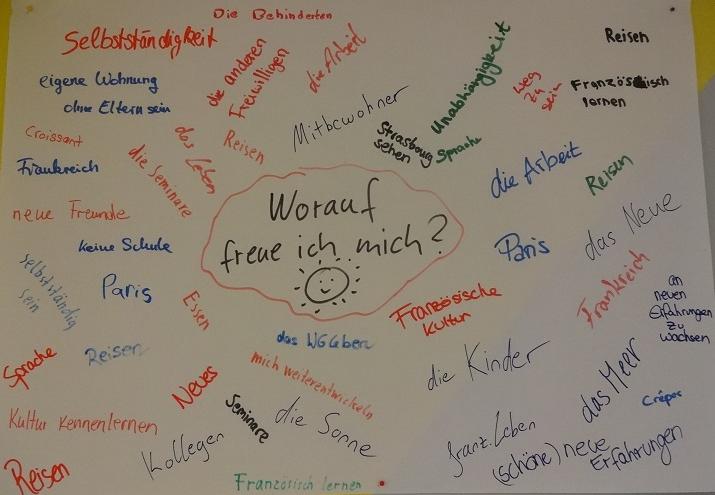 Die Behinderten
Selbstständigkeit
die anderen
Freiwilligen
die Arbeit
Unabhängigkeit
Reisen
eigene Wohnung
ohne Eltern sein
Weg
zu
sein
Französisch
lernen
Mitbewohner
Croissant
das Leben
Reisen
Strasbourg
sehen
Sprache
Frankreich
die Seminare
die Arbeit
Reisen
neue Freunde
Worauf
freue ich mich?
das Neue
keine Schule
Paris
selbstständig
sein
Paris
Essen
Französische
Kultur
Frankreich
an
neuen
Erfahrungen
zu
wachsen
Sprache
Reisen
das WG Leben
mich weiterentwickeln
die Kinder
das Meer
Crêpes
Neues
Seminare
die Sonne
Kultur kennenlernen
Kollegen
franz. Leben
(schöne) neue
Erfahrungen
Reisen
Französisch lernen